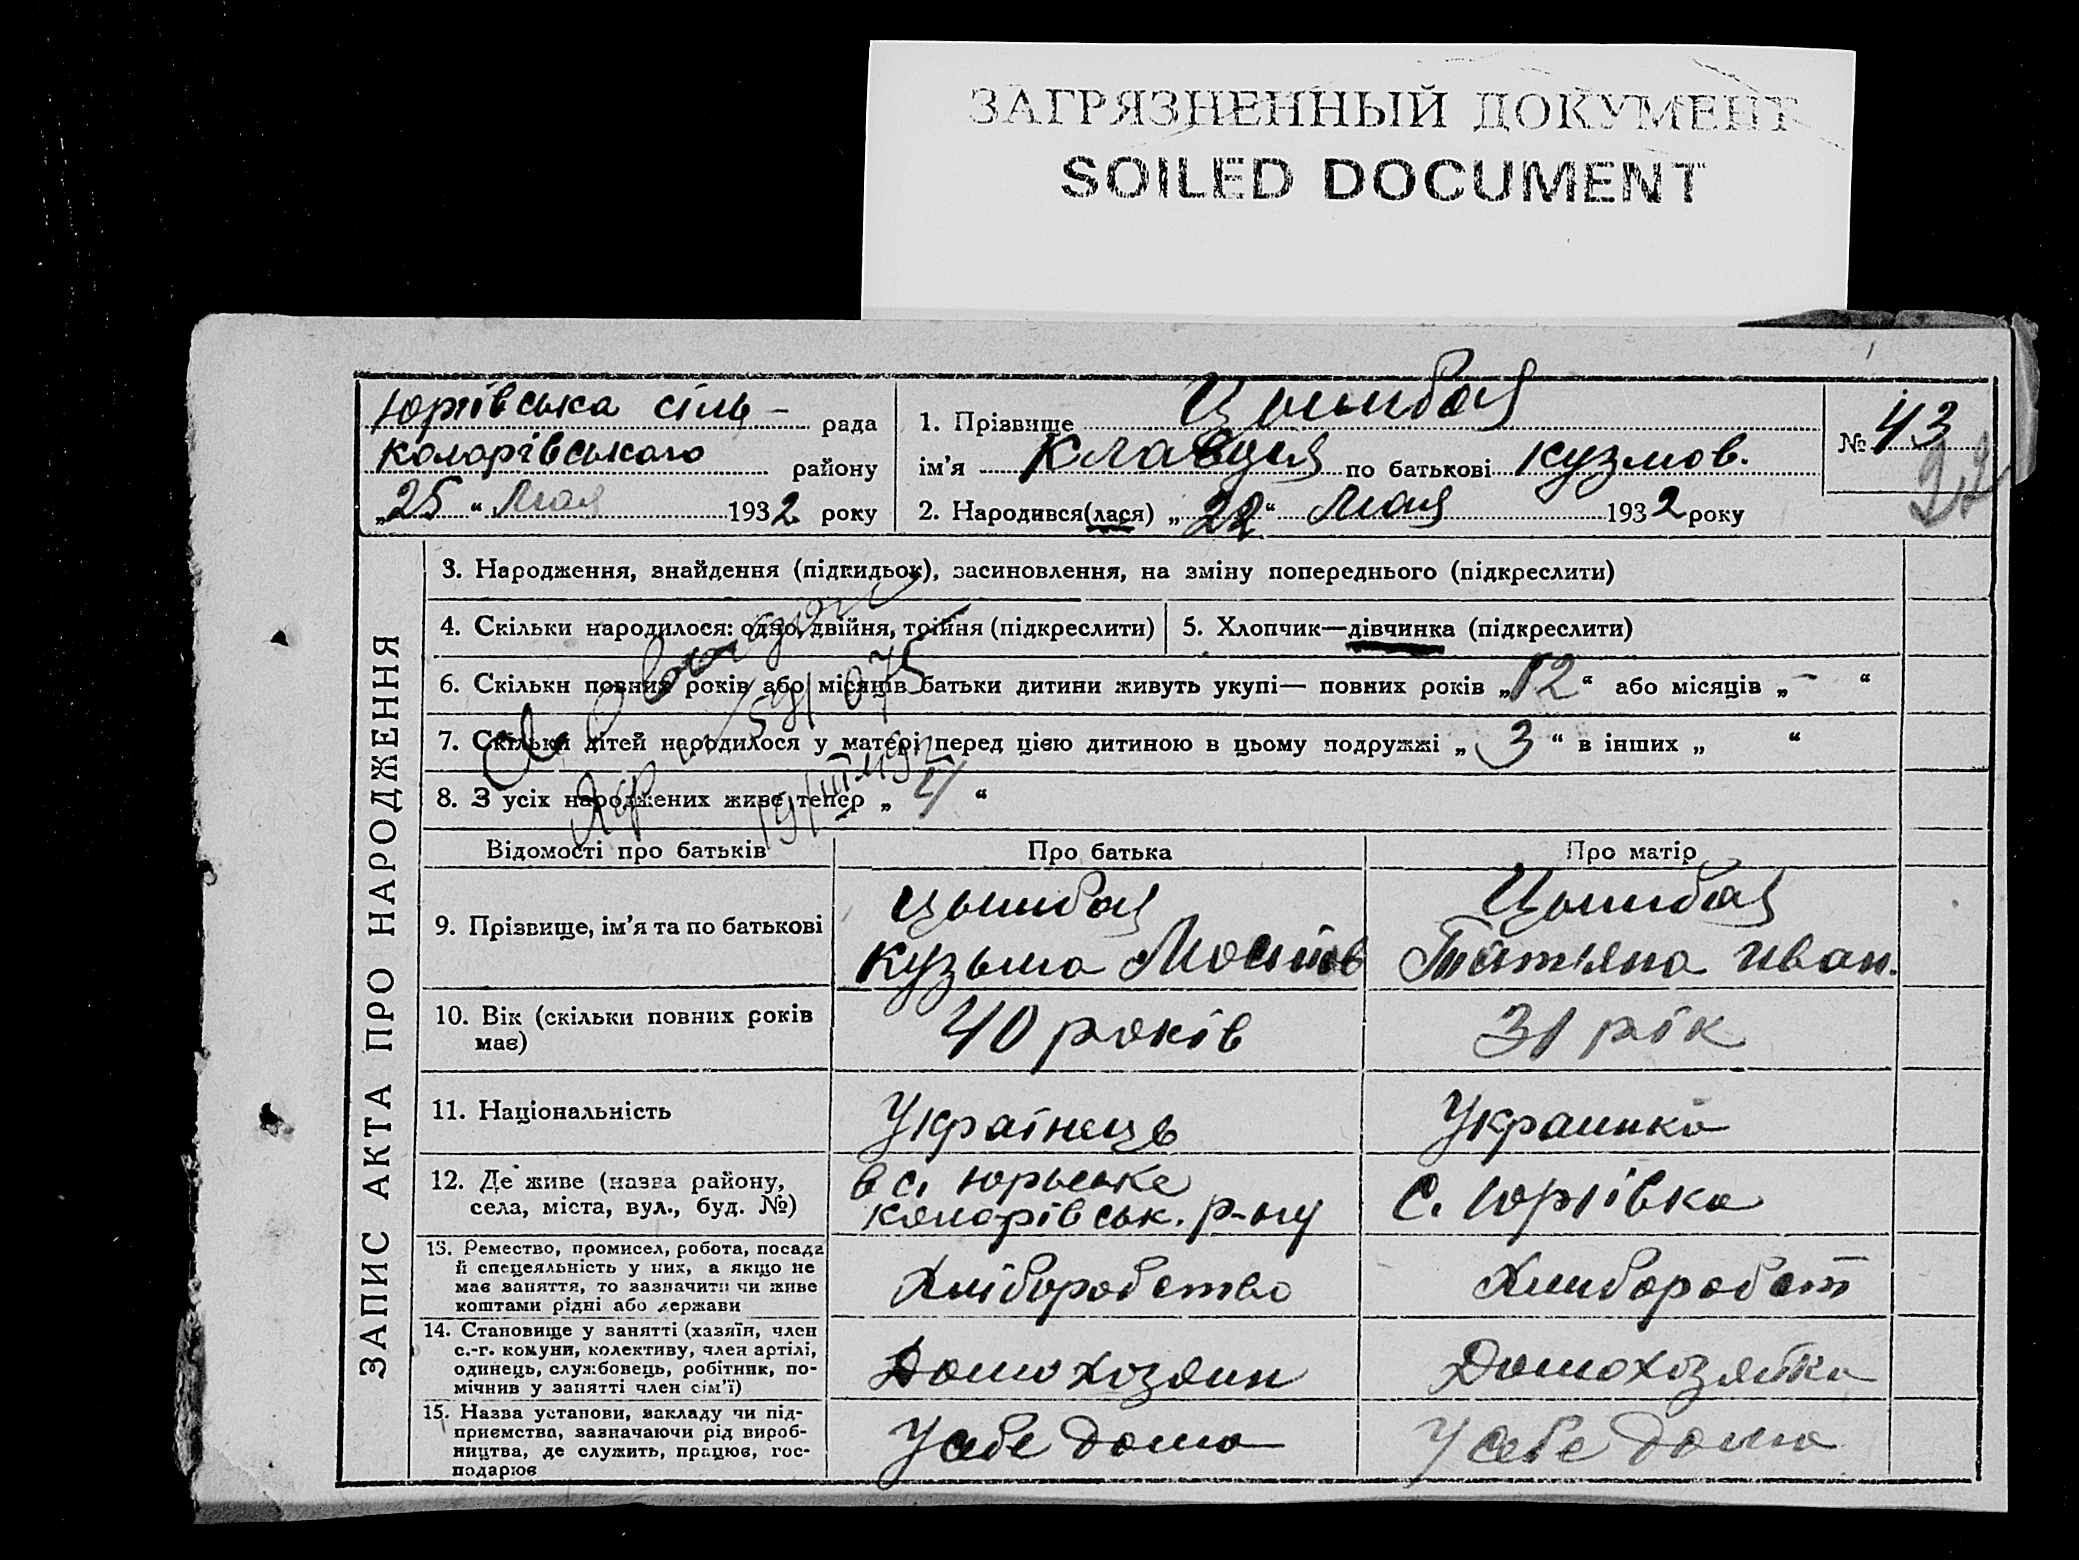 ЗАГРЯЗНЕННЫЙ ДОКУМЕНТ
SOILED DOCUMENT
Юріївська сіль- рада
Коларівського району
„25“ Мая 1932 року
1. Прізвище Цымбал
ім’я Клавдия по батькові Кузмов.
2. Народився(лася) „22“ Мая 1932 року
№ 43
ЗАПИС АКТА ПРО НАРОДЖЕННЯ
3. Народження, знайдення (підкидьок), засиновлення, на зміну попереднього (підкреслити)
4. Скільки народилося: одно, двійня, трійня (підкреслити)
5. Хлопчик—дівчинка (підкреслити)
6. Скільки повних років або місяців батьки дитини живуть укупі— повних років „12“ або місяців „-“
7. Скільки дітей народилося у матері перед цією дитиною в цьому подружжі „3“ в інших „ “
8. З усіх народжених живе тепер „4“
Відомості про батьків
Про батька
Про матір
9. Прізвище, ім’я та по батькові
Цымбал
Кузьма
Цымбал
Татьяна Иван.
10. Вік (скільки повних років
має)
40 років
31 рік
11. Національність
Українець
Украинка
12. Де живе (назва району,
села, міста, вул., буд. №)
в с. Юрьевке
Коларівськ. р-ну
С. Юріївка
13. Ремество, промисел, робота, посада
й спецеяльність у них, а якщо не
має заняття, то зазначити чи живе
коштами рідні або держави
Хліборобство
Хлиборобст
14. Становище у занятті (хазяїн, член
с.-г. комуни, колективу, член артілі,
одинець, службовець, робітник, по-
мічнив у занятті член сім’ї)
Домохозяин
Домохозяйка
15. Назва установи, закладу чи під-
приємства, зазначаючи рід вироб-
ництва, де служить, працює, гос-
подарює
У себе дома
У себе дома